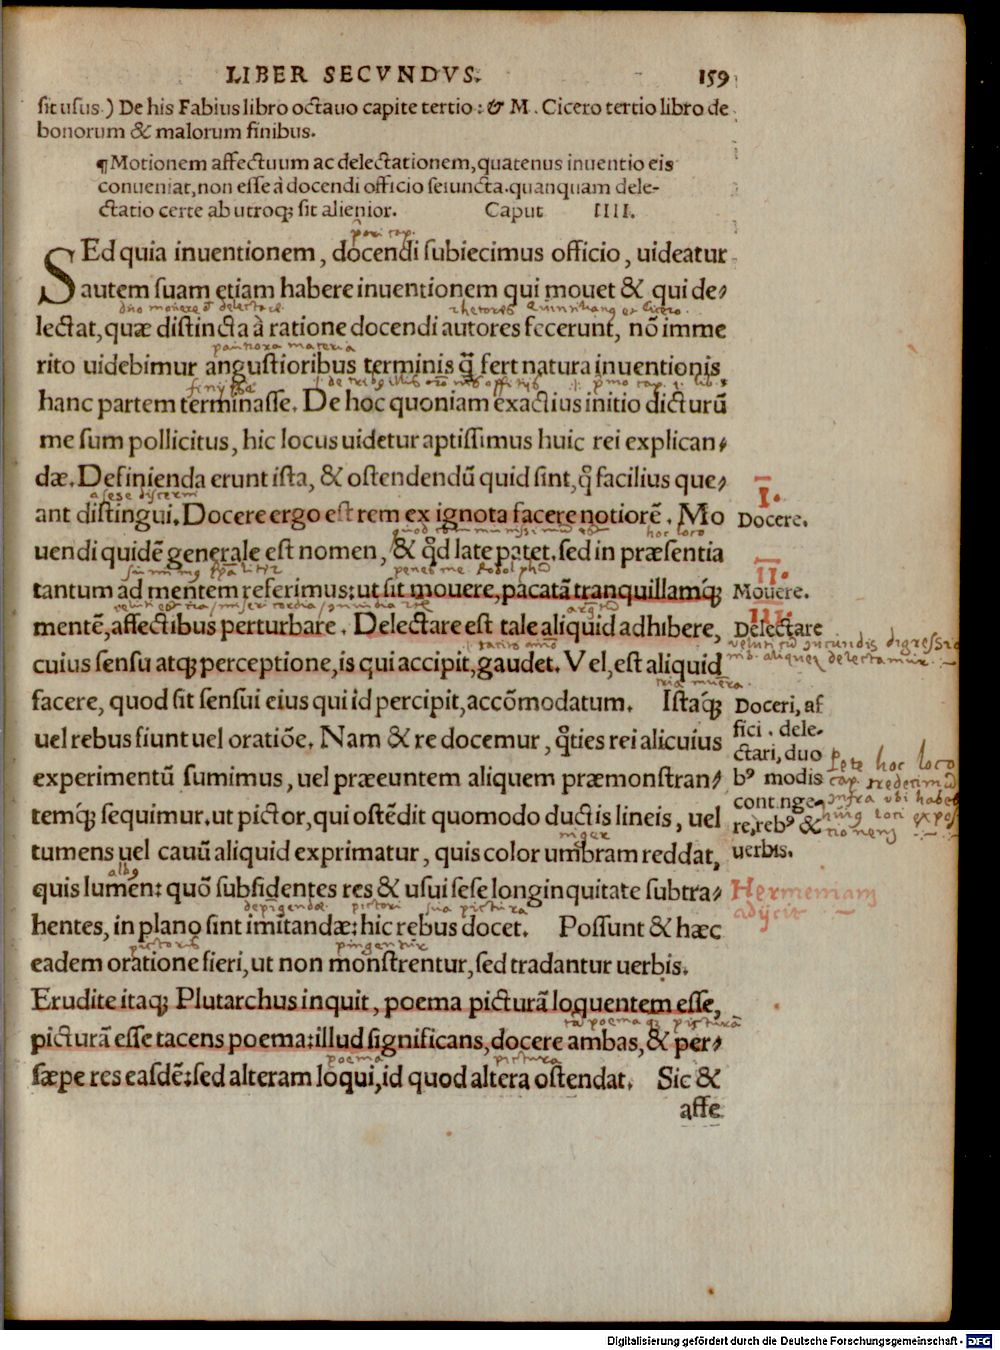 LIBER SECVNDVS. 159
sit usus.) De his Fabius libro octauo capite tertio: & M. Cicero tertio libro de
bonorum & malorum finibus.
¶Motionem affectuum ac delectationem, quatenus inuentio eis
conueniat, non esse à docendi officio seiuncta. quanquam dele-
ctatio certe ab utroq; sit alienior. Caput IIII.
SEd quia inuentionem, docendi subiecimus officio, uideatur
autem suam etiam habere inuentionem qui mouet & qui de-
duo mouere & delectare rhetores
lectat, quæ distincta à ratione docendi autores fecerunt, nō imme
rito uidebimur angustioribus terminis q̃ fert natura inuentionis
hanc partem terminasse. De hoc quoniam exactius initio dicturū
me sum pollicitus, hic locus uidetur aptissimus huic rei explican-
dæ. Definienda erunt ista, & ostendendū quid sint, q̃ facilius que-
a sese discerni
ant distingui. Docere ergo est rem ex ignota facere notiorē. Mo
I.
Docere.
hoc loco
uendi quidē generale est nomen, & qd late patet. sed in præsentia
tantum ad mentem referimus: ut sit mouere, pacatā tranquillamq́;
II.
Mouere.
mentē, affectibus perturbare. Delectare est tale aliquid adhibere,
III.
Delectare
cuius sensu atq; perceptione, is qui accipit, gaudet. Vel, est aliquid
facere, quod sit sensui eius qui id percipit, accōmodatum. Istaq́;
uel rebus fiunt uel oratiōe. Nam & re docemur, q̃ties rei alicuius
experimentū sumimus, uel præeuntem aliquem præmonstran-
temq́; sequimur. ut pictor, qui ostēdit quomodo ductis lineis, uel
Doceri, af
fici. dele-
ctari, duo
bꝰ modis
contınge-
re, rebꝰ &
uerbis.
Pete hoc loco
niger
tumens uel cauū aliquid exprimatur, quis color umbram reddat,
quis lumen: quō subsidentes res & usui sese longinquitate subtra-
hentes, in plano sint imitandæ: hic rebus docet. Possunt & hæc
pictoris pingentur
eadem oratione fieri, ut non monstrentur, sed tradantur uerbis.
Erudite itaq; Plutarchus inquit, poema picturā loquentem esse,
picturā esse tacens poema: illud significans, docere ambas, & per-
poema pictura
sæpe res easdē: sed alteram loqui, id quod altera ostendat. Sic &
affe
Digitalisierung gefördert durch die Deutsche Forschungsgemeinschaft - DFG